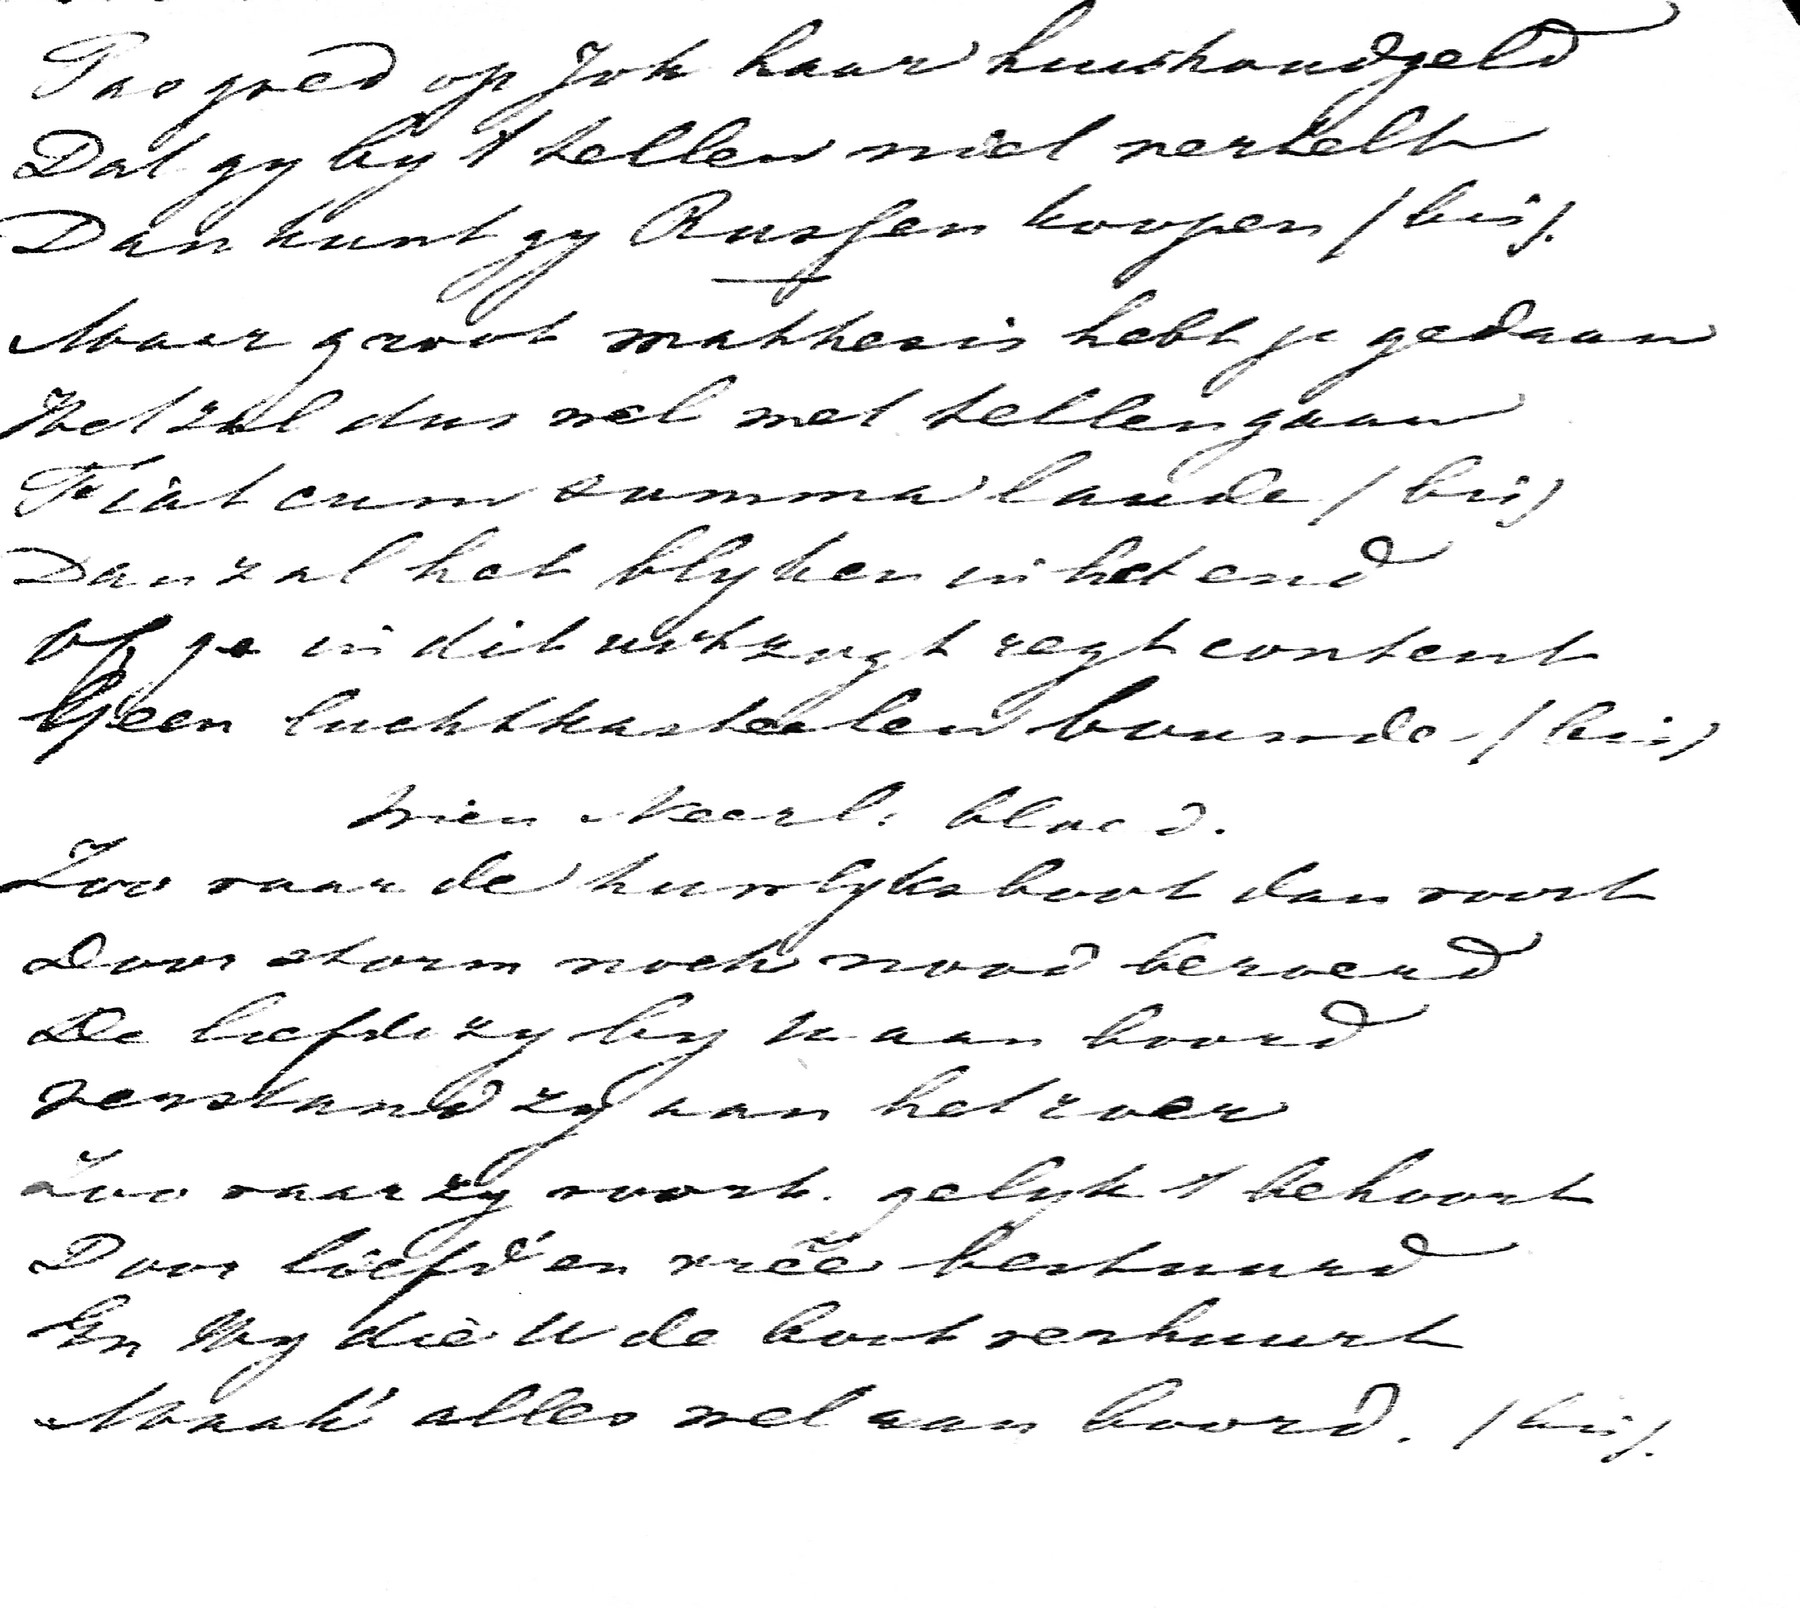 Pas goed op Joh haar huishoudgeld
Dat gy by 't tellen niet vertelt
Dan kunt gy Russen koopen (bis).
Maar groot mathesis hebt je gedaan
Het zal dus wel met tellen gaan
Fiat cum summa laude (bis)
Dan zal het blyken in het end
Of ge in dit uitzugt regt content
Geen luchtkasteelen bouwde (bis)
Wien Neerl. bloed.
Zoo vaar de huwlyksboot dan voort
Door storm noch nood beroerd
De liefde zy by U aan boord
verstand zy aan het roer
Zoo vaar zy voort. gelyk 't behoort
Door liefd' en vreê bestuurd
En Hy die U de boot verhuurt
Maak' alles wel aan boord. (bis).